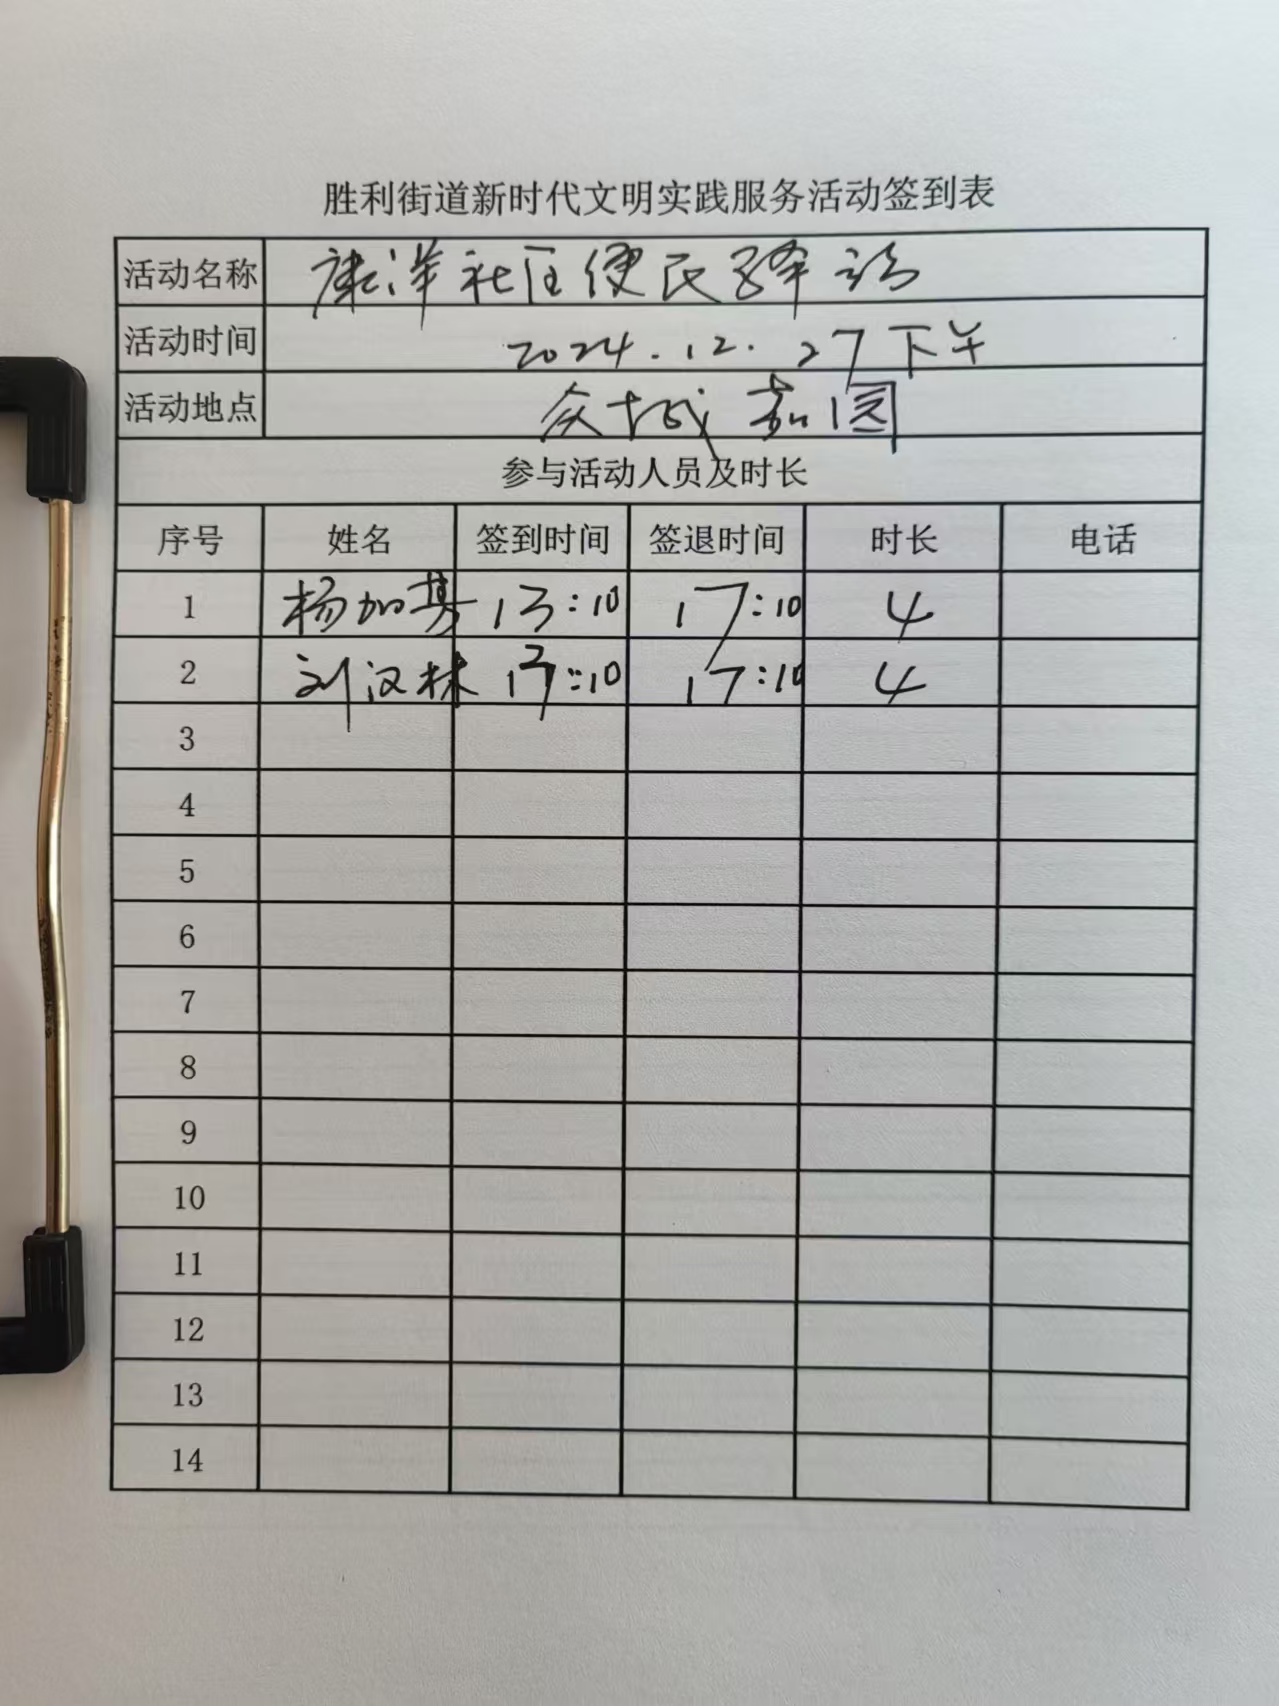 胜利街道新时代文明实践服务活动签到表
活动名称 康洋社区便民驿站
活动时间 2024.12.27下午
活动地点 众城嘉园
参与活动人员及时长
序号 姓名 签到时间 签退时间 时长 电话
1 杨加 13:10 17:10 4
2 刘汉林 13:10 17:10 4
3
4
5
6
7
8
9
10
11
12
13
14